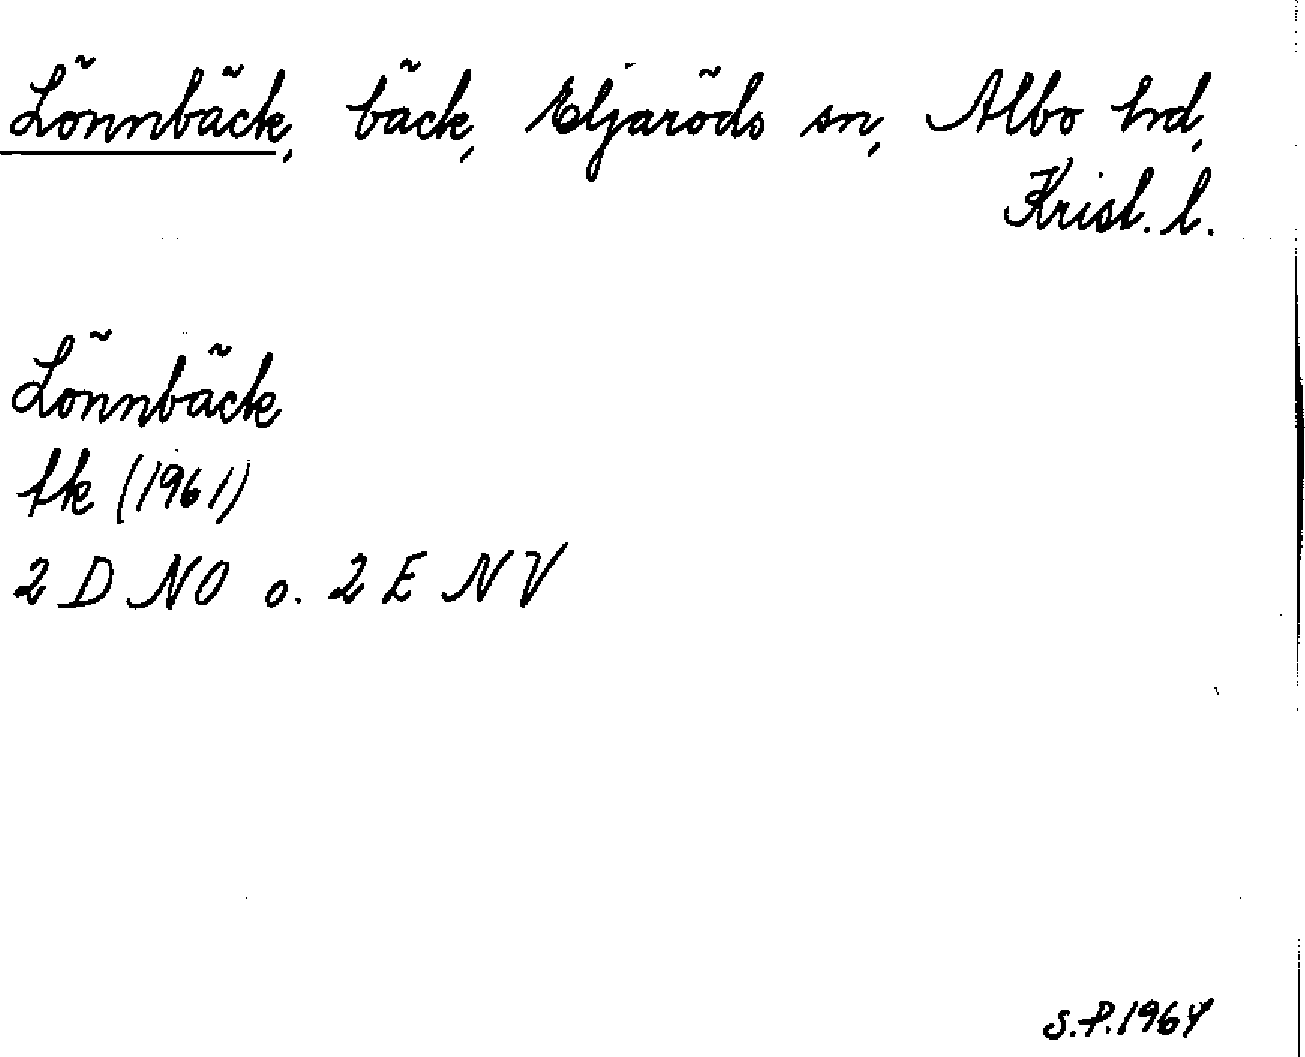 Lönnbäck, bäck, Eljaröds sn, Albo hd,
Krist. l.
Lönnbäck
tk (1961)
2 D NO o. 2 E NV
S.P. 1964